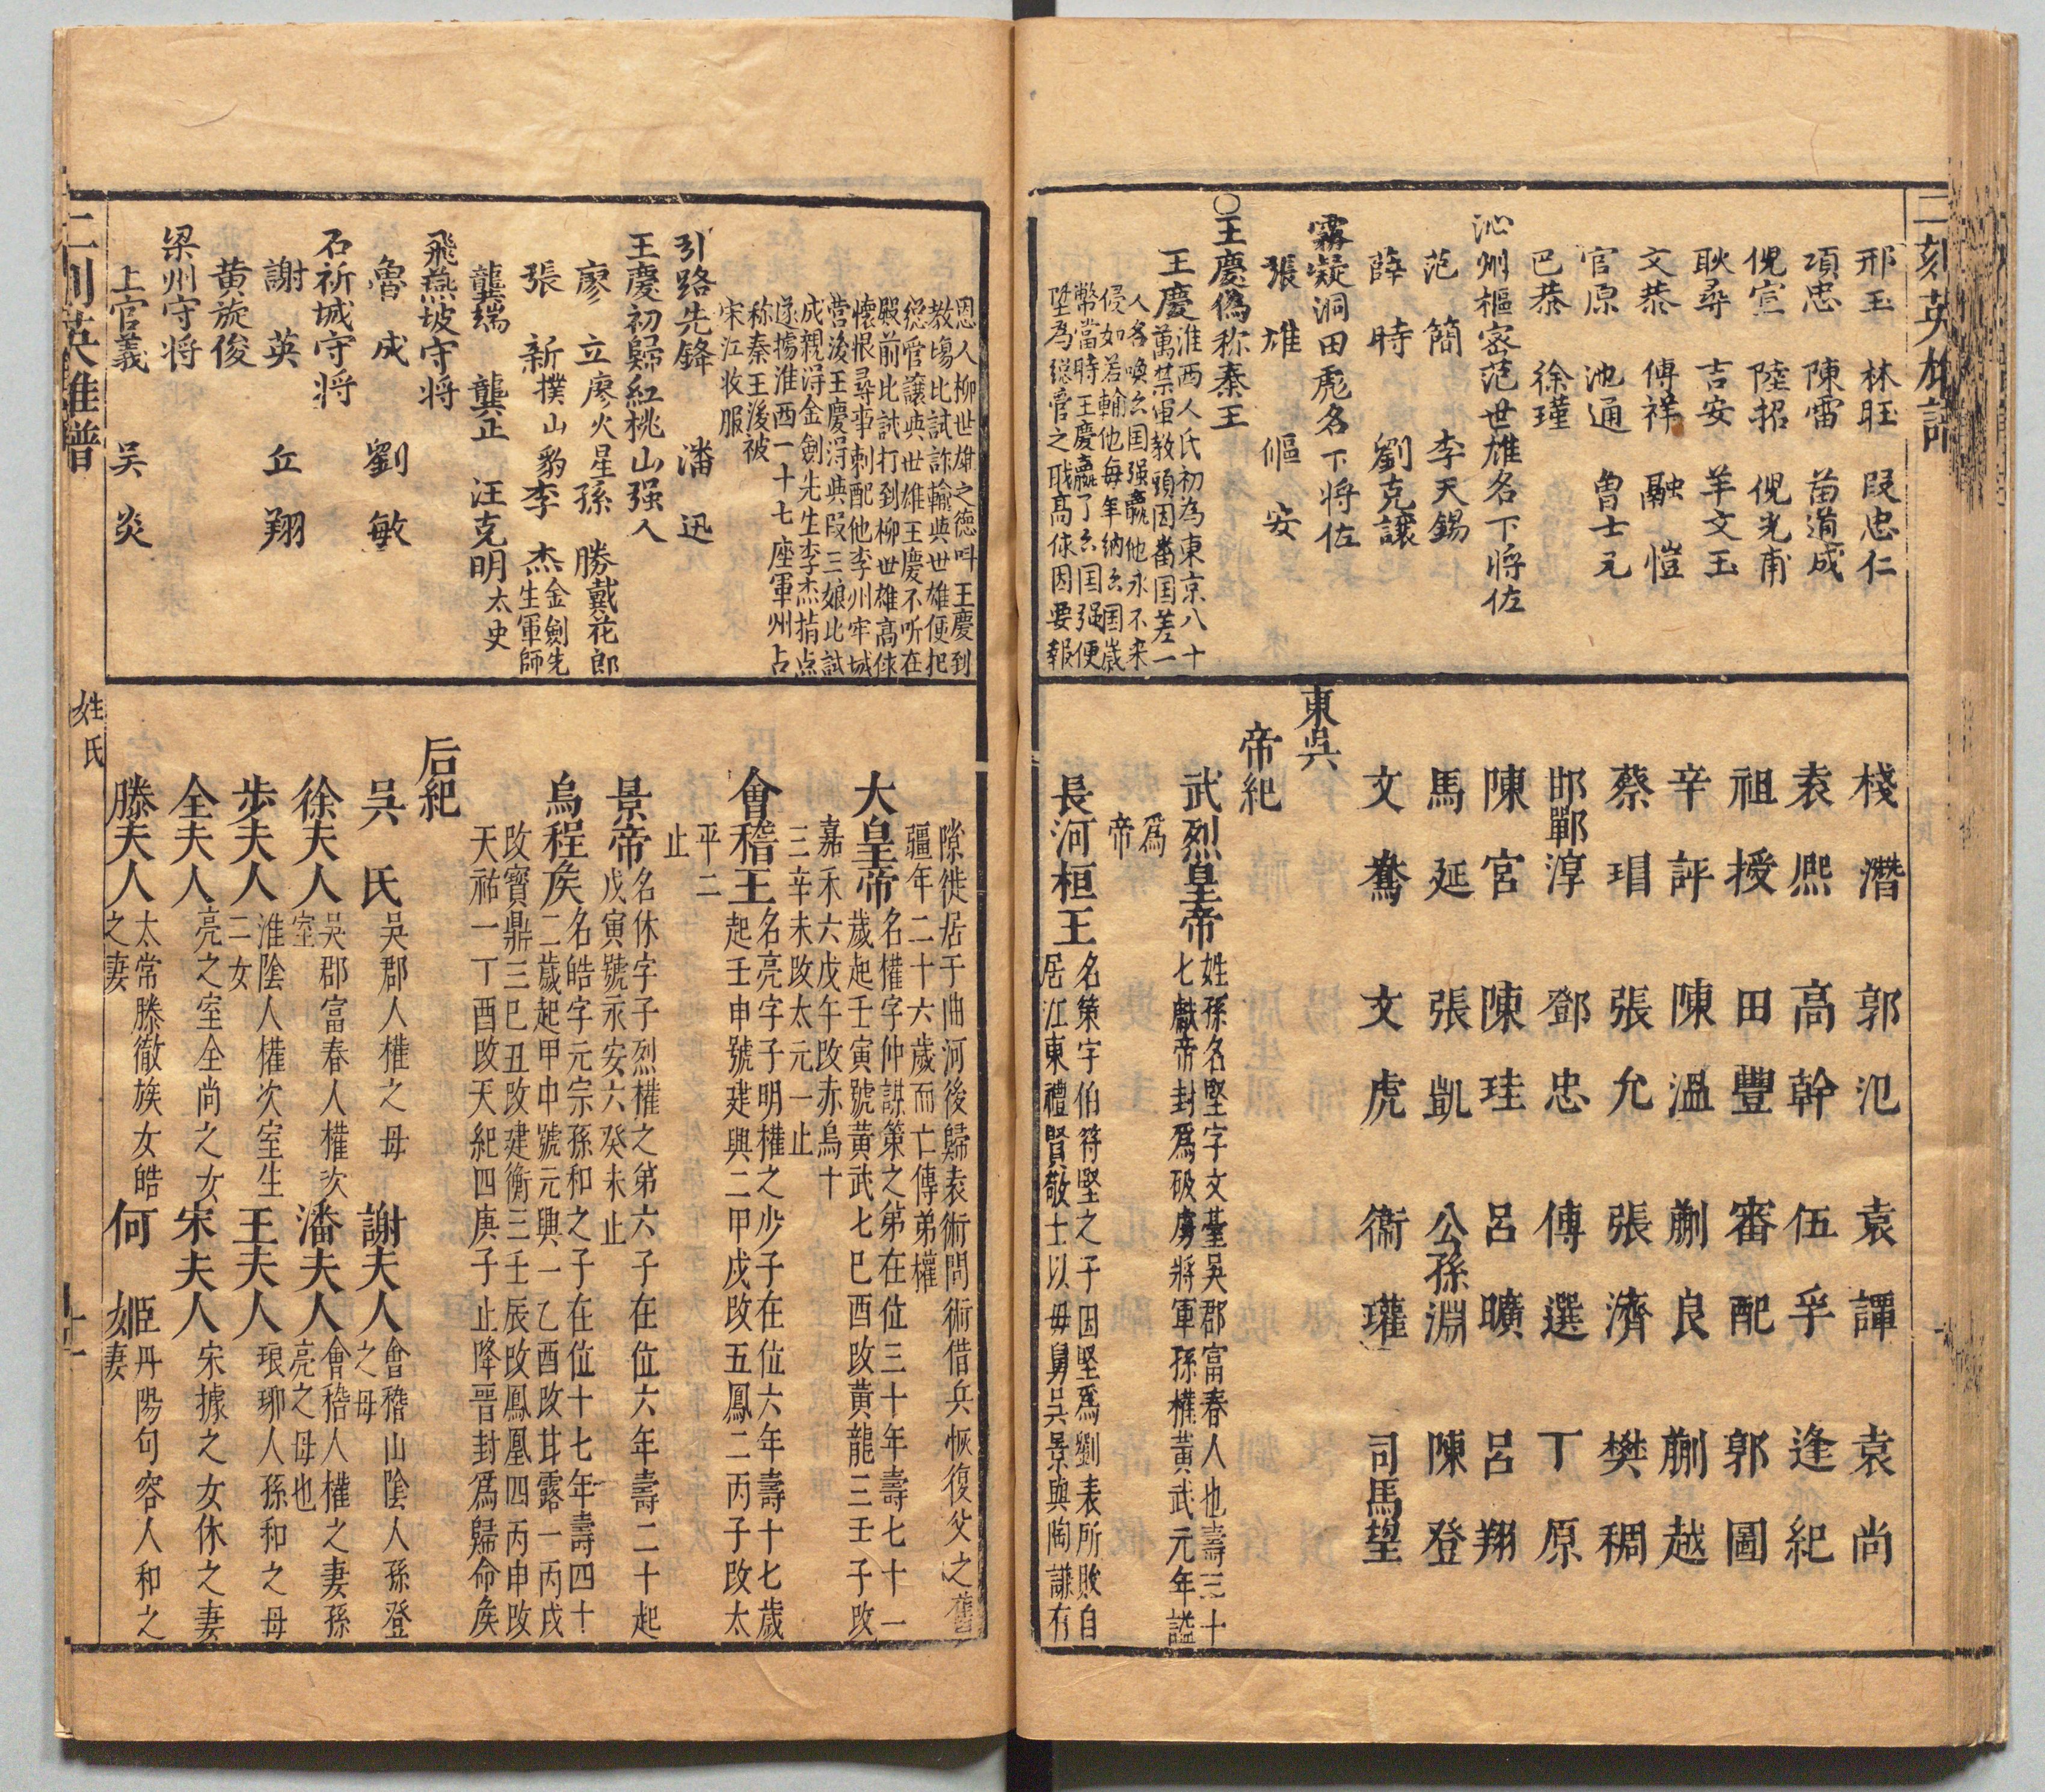 二刻英雄譜
邢玉　林旺　段忠仁
項忠　陳雷　苗道成
倪宣　陸招　倪光甫
耿尋　吉安　羊文玉
文恭　傅祥　融愷
官原　池通　曾士元
巴恭　徐瑾
沁州樞密范世雄名下將佐
范簡　李天錫
薛時　劉克讓
霧凝洞田彪名下將佐
張雄　傴安
○王慶偽称秦王
王慶淮西人氏初為東京八十
萬禁軍教頭因畨国差一
人名喚厶国强贏他永不来
侵如若輸他每年納厶国歲
幣當時王慶贏了厶国强便
陞為総管之耺高俅因要報
棧潛　郭氾　袁譚　袁尚
袁熈　高幹　伍孚　逢紀
祖授　田豐　審配　郭圖
辛評　陳溫　蒯良　蒯越
蔡琩　張允　張濟　樊稠
邯鄲淳　鄧忠　傅選　丁原
陳宮　陳珪　呂曠　呂翔
馬延　張凱　公孫淵　陳登
文鴦　文虎　衞瓘　司馬望
東吳
帝紀
武烈皇帝姓孫名堅字文臺吳郡富春人也壽三十
七獻帝封爲破虜將軍孫權黃武元年謚
爲
帝
長河桓王名策字伯符堅之子因堅爲劉表所敗自
居江東禮賢敬士以毋舅吳景與陶謙有
恩人柳世雄之德呌王慶到
教塲比試詐輸與世雄便把
総管譲與世雄王慶不听在
殿前比試打到柳世雄高俅
懐恨尋事刺配他李州牢城
营後王慶淂與段三娘比試
成親淂金劍先生李杰指点
遂據淮西一十七座軍州占
称秦王後被
宋江收服
引路先鋒　潘迅
王慶初歸紅桃山强人
廖立廖火星孫勝戴花郎
張新撲山豹李杰金劍先
生軍師
龔端　龔正　汪克明太史
飛燕坡守将
魯成　劉敏
石祈城守将
謝英　丘翔
黄旋俊
梁州守将
上官義　吴炎
隙徙居于曲河後歸袁術問術借兵恢復父之舊
疆年二十六歲而亡傳弟權
大皇帝名權字仲謀策之弟在位三十年壽七十一
歲起壬寅號黃武七巳酉改黃龍三壬子改
嘉禾六戊午改赤烏十
三辛未改太元一止
會稽王名亮字子明權之少子在位六年壽十七歲
起壬申號建興二甲戌改五鳳二丙子改太
平二
止
景帝名休字子烈權之第六子在位六年壽二十起
戊寅號永安六癸未止
烏程矦名皓字元宗孫和之子在位十七年壽四十
二歲起甲申號元興一乙酉改甘露一丙戌
改寶鼎三巳丑改建衡三壬辰改鳳凰四丙申改
天祐一丁酉改天紀四庚子止降晋封爲歸命矦
后紀
吳氏吳郡人權之母　謝夫人會稽山陰人孫登
之母
徐夫人吳郡富春人權次
室　潘夫人會稽人權之妻孫
亮之母也
步夫人淮陰人權次室生
二女　王夫人琅琊人孫和之母
全夫人亮之室全尚之女　宋夫人宋據之女休之妻
滕夫人太常滕徹族女皓
之妻　何姬丹陽句容人和之
妻
二刻英雄譜　姓氏　十一